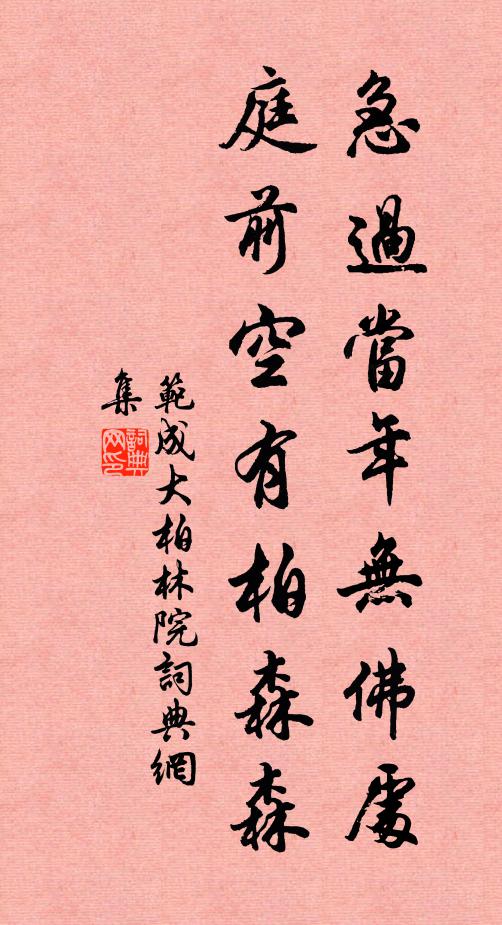 急過當年無佛處
庭前空有柏森森
範成大柏林院詞典網
集
詞典网印